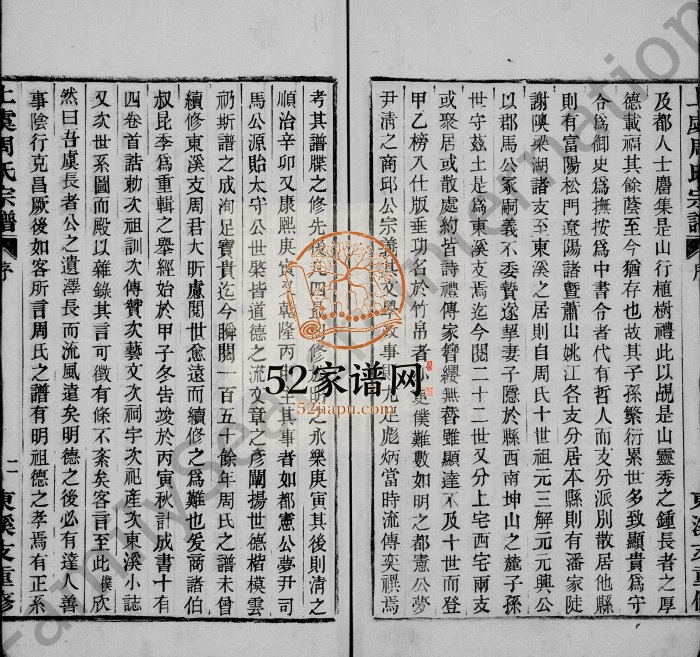 及都人士麕集是山行植樹禮此以覘是山靈秀之鍾長者之厚
德載福其餘蔭至今猶存也故其子孫繁衍累世多致顯貴爲守
令爲御史爲撫按爲中書令者代有哲人而支分派別散居他縣
則有富陽松門遼陽諸暨蕭山姚江各支分居本縣則有潘家陡
謝陳梁湖諸支至東溪之居則自周氏十世祖元三解元元興公
以郡馬公家嗣義不委贄遂挈妻子隱於縣西南坤山之麓子孫
世守兹土是爲東溪支焉迄今閱二十二世又分上宅西宅兩支
或聚居或散處約皆詩禮傳家簪纓無替雖顯達不及十世而登
甲乙榜入仕版垂功名於竹帛者 是僕難數如明之都憲公夢
尹清之商邱公宗義其文學政事則尤足彪炳當時流傳奕禩焉
考其譜牒之修先後 四 修 明之永樂庚寅其後則清之
順治辛卯又康熙庚寅 乾隆丙 主其事者如都憲公夢尹司
馬公源貽太守公世棨皆道德之流文章之彥闡揚世德楷模雲
礽斯譜之成洵足寶貴迄今瞬閱一百五十餘年周氏之譜未曾
續修東溪支周君大昕慮閱世愈遠而續修之爲難也爰商諸伯
叔昆季爲重輯之舉經始於甲子冬告竣於丙寅秋計成書十有
四卷首誥勅次祖訓次傳贊次藝文次祠宇次祀產次東溪小誌
又次世系圖而殿以雜錄其言可徵有條不紊矣客言至此僕欣
然曰吾虞長者公之遺澤長而流風遠矣明德之後必有達人善
事陰行克昌厥後如客所言周氏之譜有明祖德之孝焉有正系
上虞周氏宗譜
序
二
東溪支重修
52家谱网
52jiapu.com
FamilySearch International